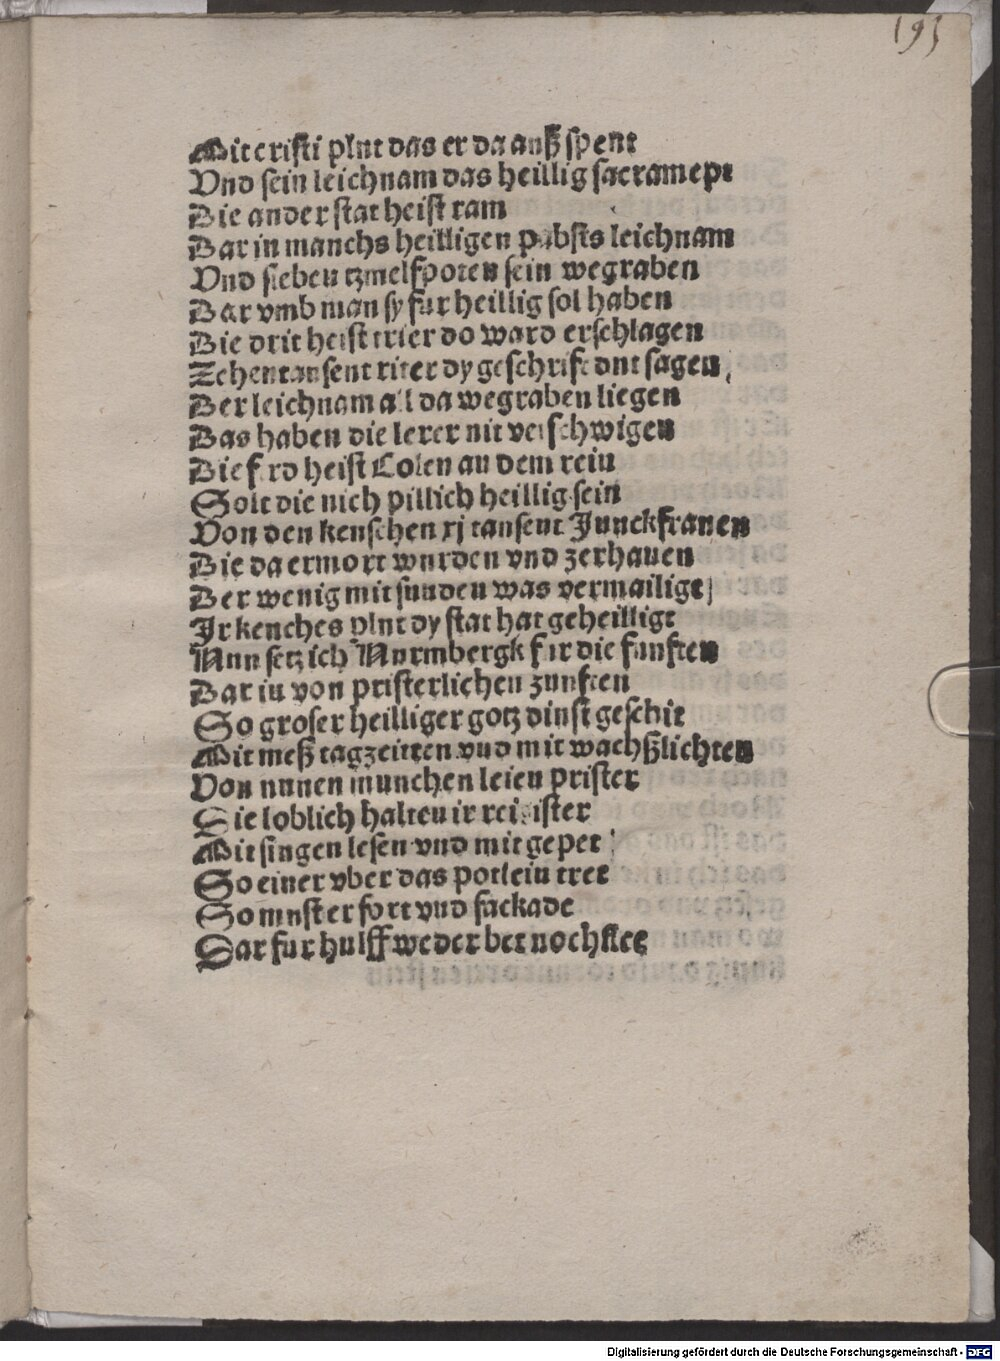 193
Mit cristi plut das er da auß spent
Vnd sein leichnam das heillig sacrament
Die ander stat heist ram
Dar in manchs heilligen pabsts leichnam
Vnd sieben tzwelfpoten sein wegraben
Dar vmb man sy fur heillig sol haben
Die drit heist trier do ward erschlagen
Zehentausent riter dy geschrift dut sagen
Der leichnam all da wegraben liegen
Das haben die lerer nit verschwigen
Die fird heist Colen an dem rein
Solt die nich pillich heillig sein
Von den keuschen xj tausent Junckfrauen
Die da ermort wurden vnd zerhauen
Der wenig mit sunden was vermailigt
Ir keuches plut dy stat hat geheilligt
Nun setz ich Nurmbergk fur die funften
Dar in von pristerlichen zunften
So groser heilliger gotz dinst geschit
Mit meß tagzeitten vnd mit wachßlichten
Von nunen munchen leien prister
Die loblich halten ir register
Mit singen lesen vnd mit gepet
So einer vber das potlein tret
So must er fort vnd sackade
Dar fur hulff weder bet noch flee
Digitalisierung gefördert durch die Deutsche Forschungsgemeinschaft - DFG